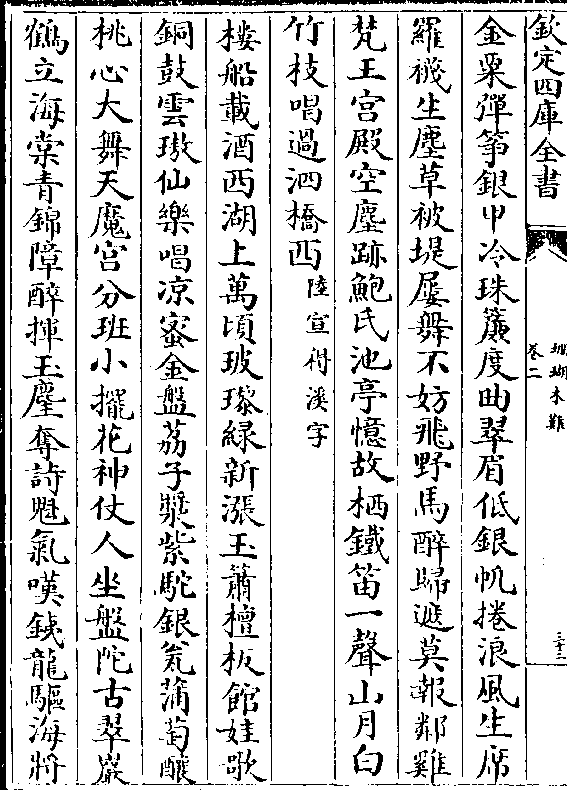 欽定四庫全書
珊瑚木難
卷二
三十二
金粟彈箏銀甲冷珠簾度曲翠眉低銀帆捲浪風生席
羅襪生塵草被堤屢舞不妨飛野馬醉歸遮莫報鄰雞
梵王宮殿空塵跡鮑氏池亭憶故栖鐵笛一聲山月白
竹枝唱過泗橋西陸宣得溪字
樓船載酒西湖上萬頃玻瓈綠新漲玉簫檀板館娃歌
銅鼓雲璈仙樂唱凉蜜金盤荔子漿紫駝銀瓮蒲萄釀
桃心大舞天魔宮分班小擺花神仗人坐盤陀古翠巖
鶴立海棠青錦障醉揮玉麈奪詩魁氣嘆鋏龍驅海將